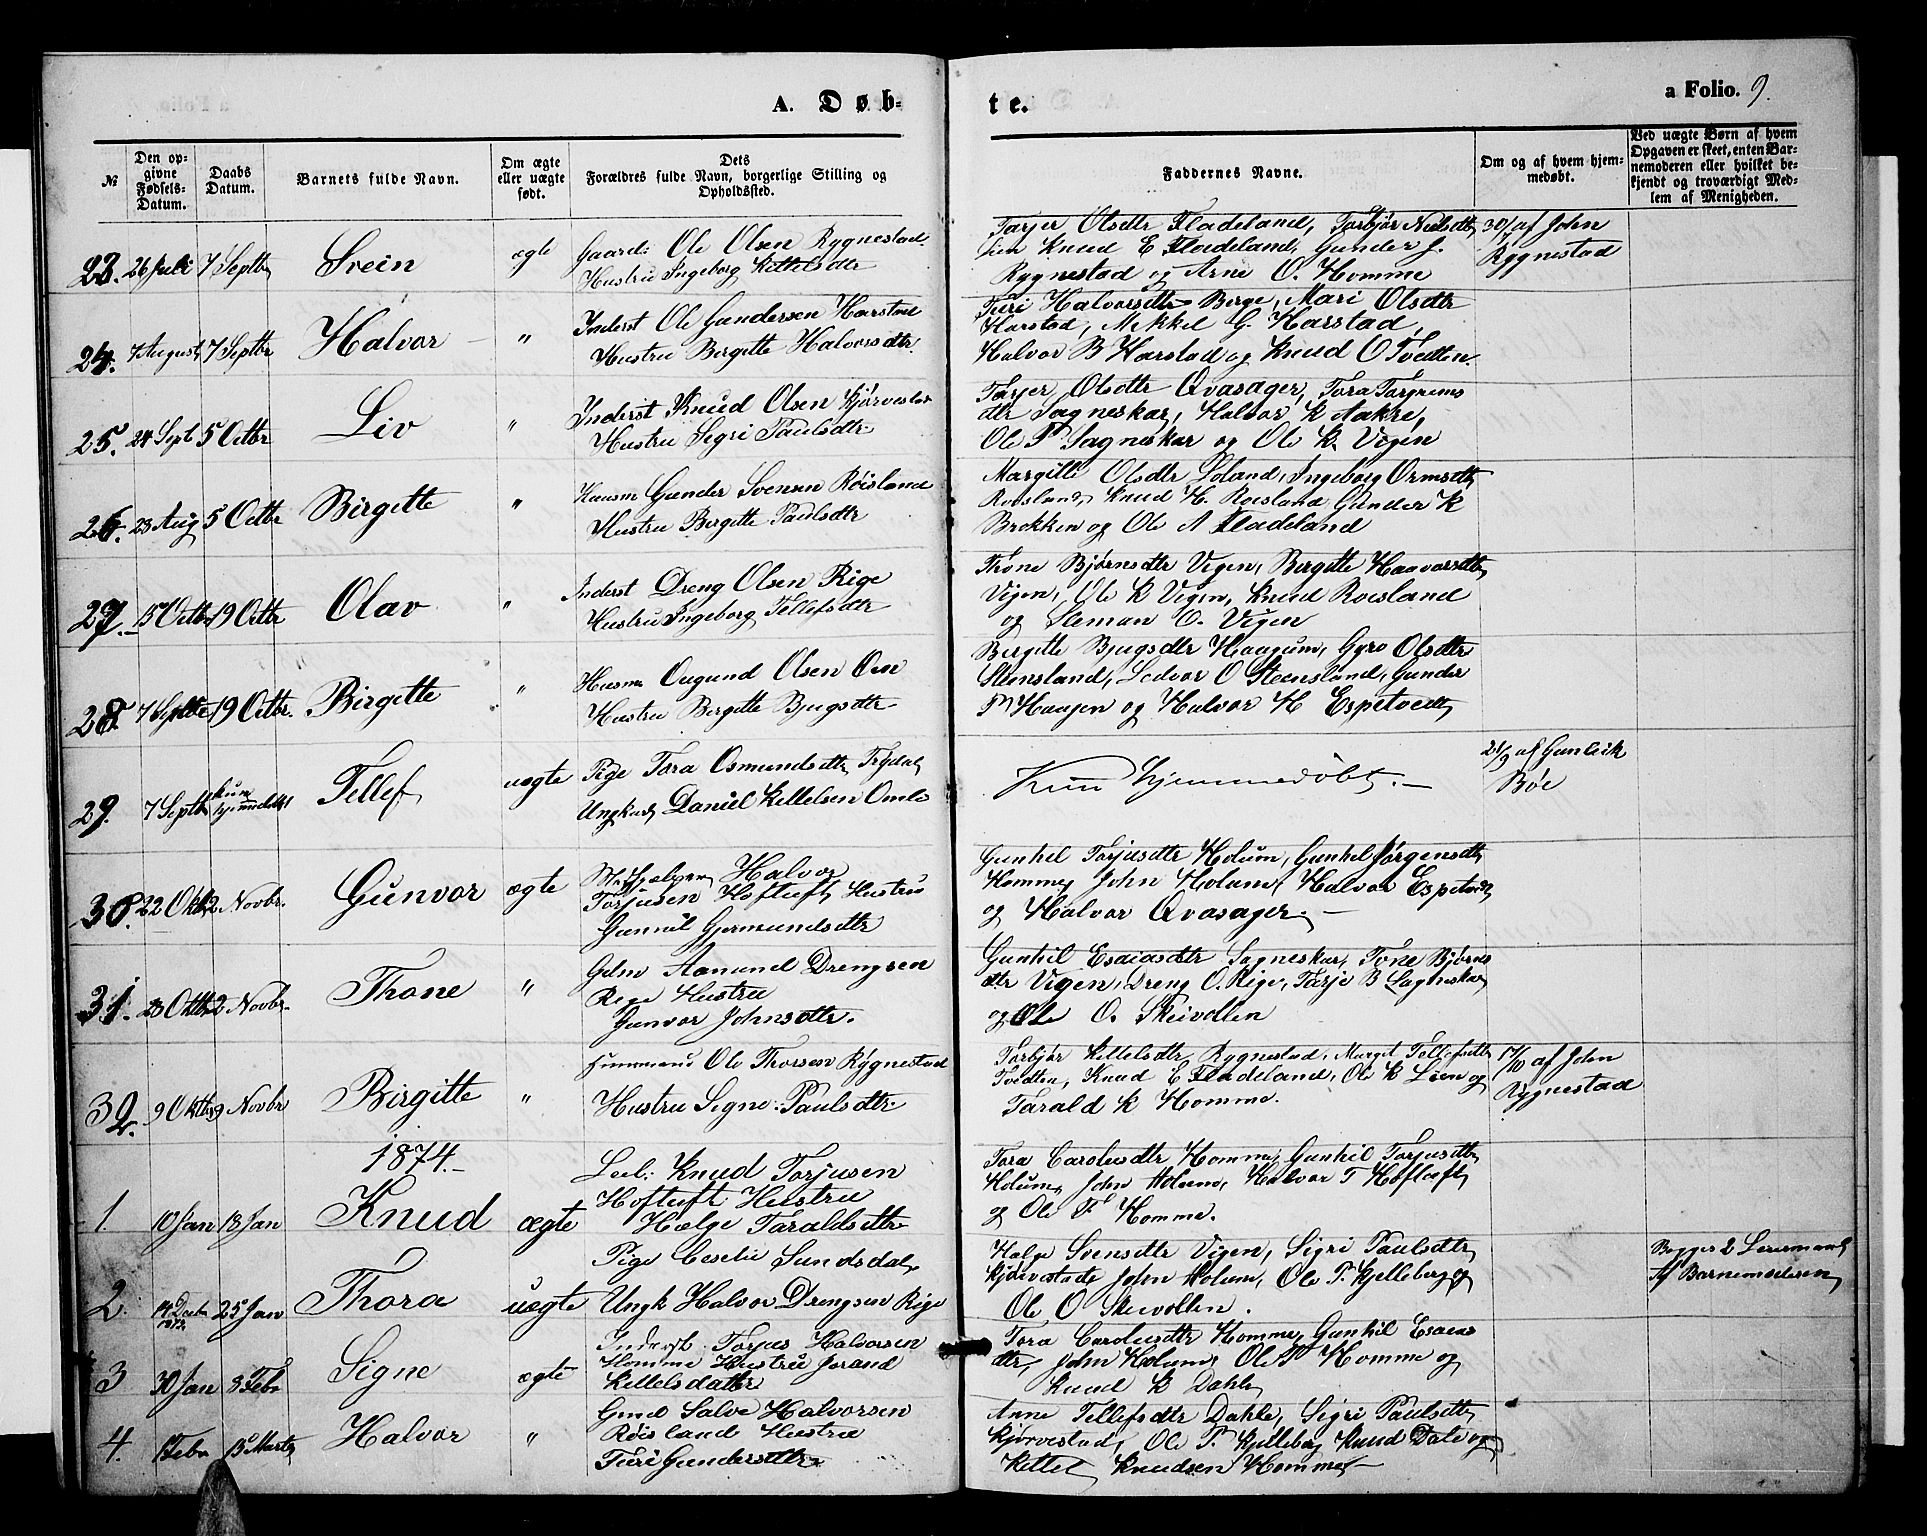 A. Døb-
te.
a Folio. 9.
№
Den op-
givne
Fødsels-
Datum.
Daabs
Datum.
Barnets fulde Navn.
Om ægte
eller uægte
født.
Dets
Forældres fulde Navn, borgerlige Stilling og
Opholdssted.
Faddernes Navne.
Om og af hvem hjem-
medøbt.
Ved uægte Børn af hvem
Opgaven er skeet, enten Bar-
nemoderen eller hvilket be-
kjendt og troværdigt Med-
lem af Menigheden.
23. 26 Juli 7 Septbr Svein ægte
Gaardr: Ole Olsen Rygnestad
Hustru Ingeborg Kittelsdtr
Tarjer Olsdtr Fladeland, Torbjør Nielsdtr
Lien Knud E Fladeland, Gunder J.
Rygnestad og Arne O. Homme
30/7 af John
Rygnestad
24. 7 August 7 Septbr Halvor "
Inderst Ole Gundersen Harstad
Hustru Birgitte Halvorsdtr.
Turi Halvorsdtr Berge, Mari Olsdtr
Harstad, Mikkel G. Harstad,
Halvor B Harstad og Knud O Tvedten.
25. 24 Sept 5 Octbr Liv "
Inderst Knud Olsen Kjørvestad
Hustru Sigri Paulsdtr
Tarjer Olsdtr Qvasager, Tora Torgrims
dtr Sagneskar, Halvor K Aakre,
Ole P Sagneskar og Ole K. Vigen
26. 23 Aug 5 Octbr Birgitte "
Husm Gunder Svensen Røisland
Hustru Birgitte Paulsdtr
Margitte Olsdtr Loland, Ingeborg Ormsdtr
Roisland, Knud H. Roisland Gunder K
Brokken og Ole A Fladeland
27. 15 Octbr 19 Octbr Olav "
Inderst Dreng Olsen Rige
Hustru Ingeborg Tellefsdtr
Thone Bjørnsdtr Vigen, Birgitte Haavorsdtr
Vigen, Ole K Vigen, Knud Roisland
og Sleman O. Vigen
28. 7 Septbr 19 Octbr. Birgitte "
Husm Ougund Olsen Oen
Hustru Birgitte Bjugsdtr
Birgitte Bjugsdtr Haugum, Gyro Olsdtr
Stensland, Ledvor O Steensland, Gunder
P Haugen og Halvor H Espetvedt
29. 7 Septbr kun
hjemmedøbt Tellef uægte
Pige Tora Osmundsdtr Trydal
Ungkarl Daniel Kittelsen Omlie
Kun hjemmedøbt.
21/9 af Gunleik
Bøe
30. 22 Oktb 2 Novbr. Gunvor ægte
Halvor
Torjusen Hoftuft, Hustru
Gunnil Gjermundsdtr
Gunhil Torjusdtr Holum, Gunhil Jørgensdtr
Homme, John Holum, Halvor Espetvedt
og Halvor Qvasager.
31. 23 Oktbr 2 Novbr. Thone "
Gdm Aamund Drengsen
Rige Hustru
Gunvor Johnsdtr.
Gunhil Esaiasdtr Sagneskar, Tone Bjørns
dtr Vigen, Dreng O. Rige, Tarje B Sagneskar
og Ole O. Skeivollen
32. 9 Oktbr 9 Novbr Birgitte "
Ole Thorsen Rygnestad
Hustru Signe Paulsdtr.
Torbjør Kittelsdtr Rygnestad, Margit Tellefsdtr
Tvedten, Knud E Fladeland, Ole K Lien og
Tarald K Homme.
17/10 af John
Rygnestad
1874.
1. 10 Jan 18 Jan Knud ægte
Leil: Knud Torjusen
Hoftuft Hustru
Hælge Taraldsdtr
Tora Carolusdtr Homme, Gunhil Torjusdtr
Holum, John Holum, Halvor T Hoftuft,
og Ole T Homme.
2. 14 Decbr
1873. 25 Jan Thora uægte
Pige Cecelie Sundsdal,
Ungk Halvor Drengsen Rige
Hælge Svensdtr Vigen, Sigri Paulsdtr
Kjørvestad, John Holum, Ole P. Kjelleberg og
Ole O Skeivollen.
Begges 2 Leiermaal
Af Barnemoderen
3 30 Jan 8 Febr Signe ægte
Inderst Torjus Halvorsen
Homme Hustru Jorand
Kittelsdatter
Tora Carolusdtr Homme, Gunhil Esaias
dtr, John Holum, Ole P Homme og
Knud K Dahle
4. 1 Febr 15 Marts Halvor "
Gmd Salve Halvorsen
Røisland Hustru
Turi Gundersdtr
Anne Tellefsdtr Dahle, Sigri Paulsdtr
Kjørvestad, Ole P. Kjelleberg Knud Dale og
Kittel Knudsen Homme